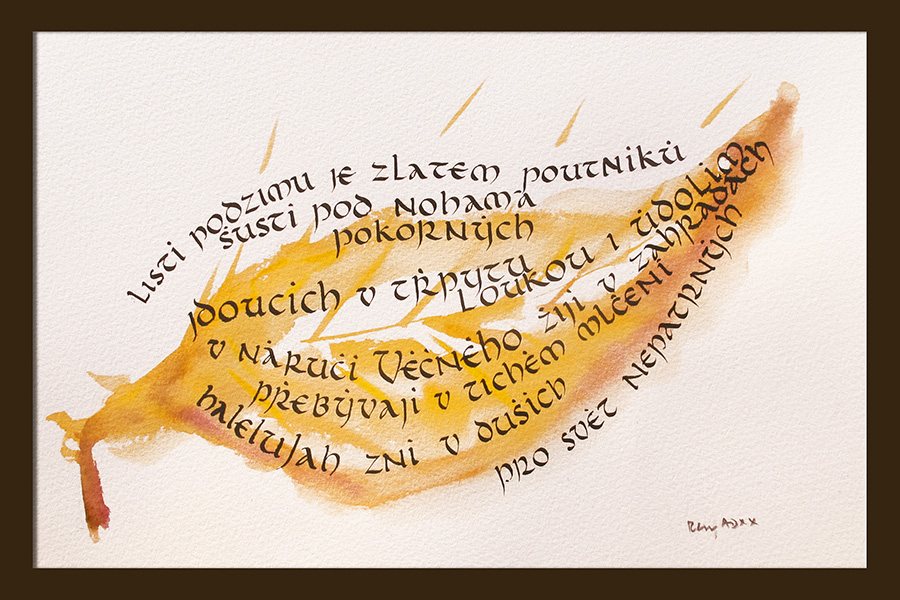 listí podzimu je zlatem poutníků
šustí pod nohama
pokorných
jdoucích v třpytu
loukou i údolím
v náručí Věčného žijí v zahradách
přebývají v tichém mlčení
halelujah zní v duších
pro svět nepatrných